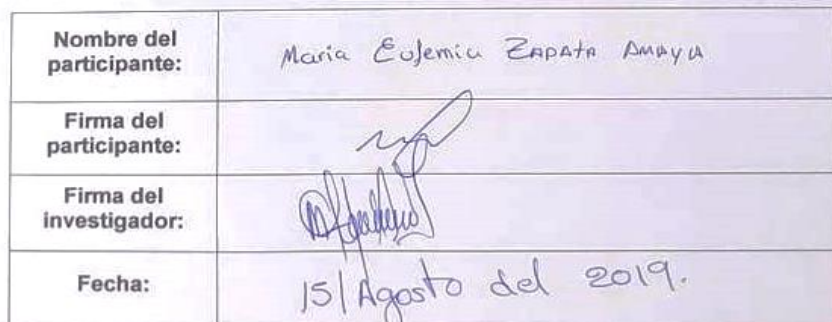 Nombre del
participante:
Maria Eufemia ZAPATA AMAYA
Firma del
participante:
Firma del
investigador:
Fecha:
15/Agosto del 2019.